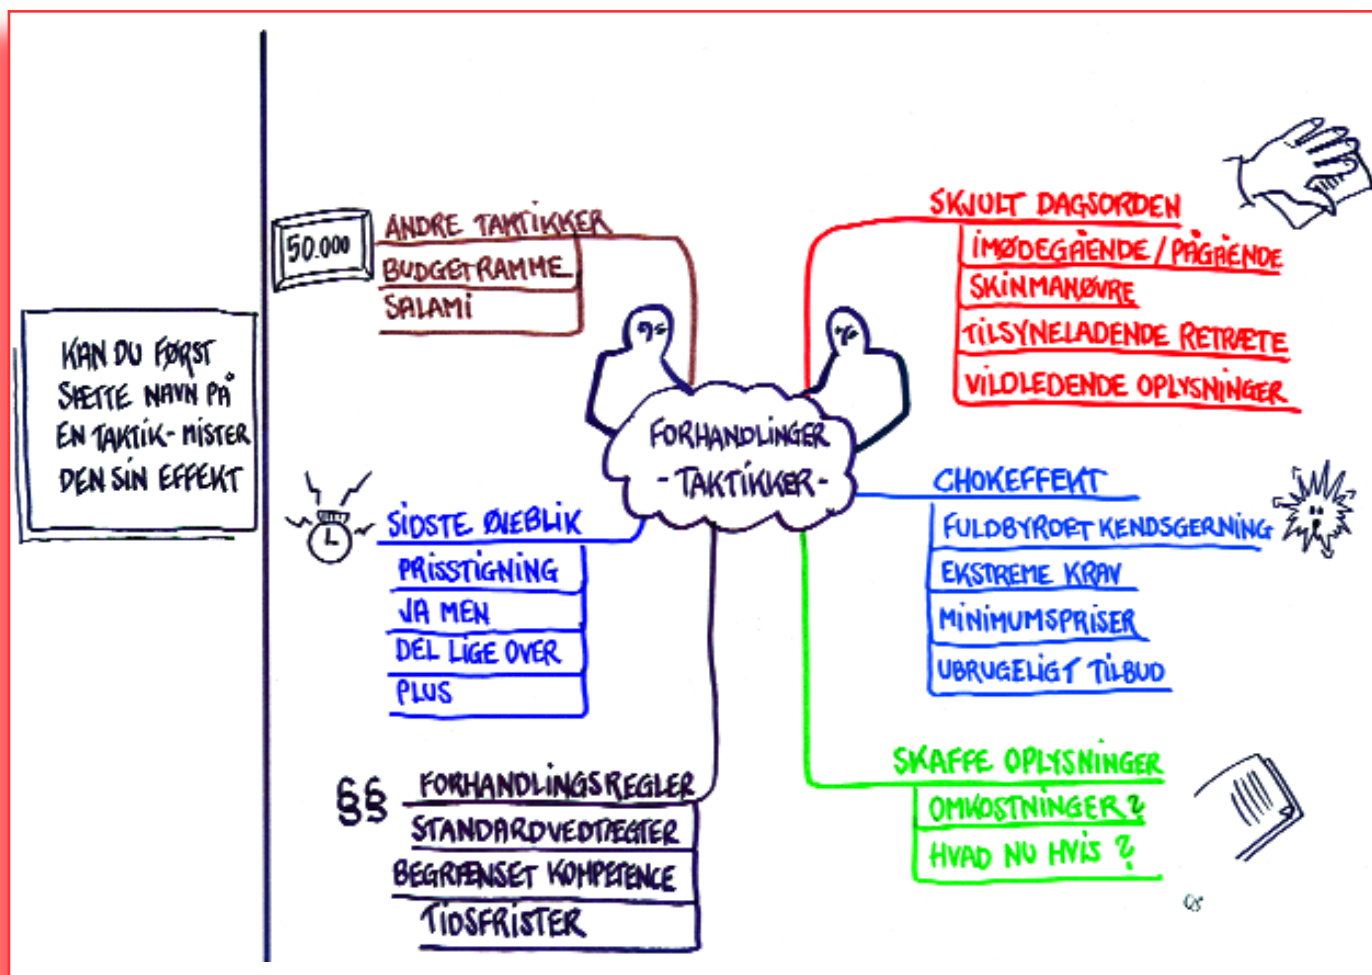 KAN DU FØRST
SÆTTE NAVN PÅ
EN TAKTIK - MISTER
DEN SIN EFFEKT
50.000
ANDRE TAKTIKKER
BUDGETRAMME
SALAMI
SIDSTE ØJEBLIK
PRISSTIGNING
JA MEN
DEL LIGE OVER
PLUS
§§
FORHANDLINGSREGLER
STANDARDVEDTÆGTER
BEGRÆNSET KOMPETENCE
TIDSFRISTER
FORHANDLINGER
- TAKTIKKER -
SKJULT DAGSORDEN
IMØDEGÅENDE / PÅGÅENDE
SKINMANØVRE
TILSYNELADENDE RETRÆTE
VILDLEDENDE OPLYSNINGER
CHOKEFFEKT
FULDBYRDET KENDSGERNING
EKSTREME KRAV
MINIMUMSPRISER
UBRUGELIGT TILBUD
SKAFFE OPLYSNINGER
OMKOSTNINGER ?
HVAD NU HVIS ?